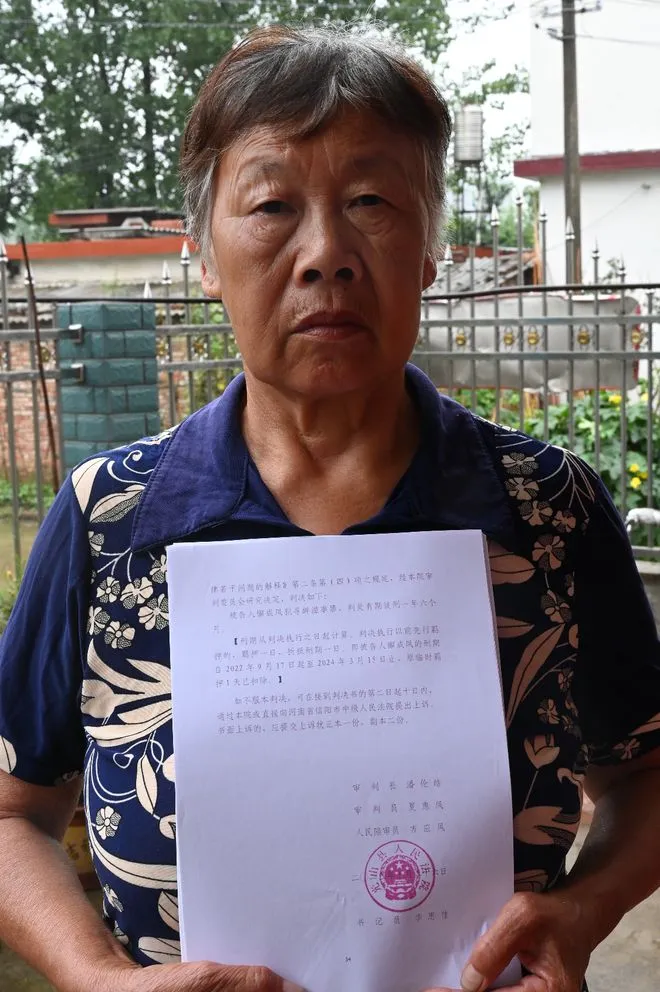 律若干问题的解释》第二条第（四）项之规定，经本院审
判委员会研究决定，判决如下：
被告人懈成凤犯寻衅滋事罪，判处有期徒刑一年六个
月。
【刑期从判决执行之日起计算，判决执行以前先行羁
押的，羁押一日，折抵刑期一日，即被告人懈成凤的刑期
自2022年9月17日起至2024年3月15日止，原临时羁
押1天已扣除。】
如不服本判决，可在接到判决书的第二日起十日内，
通过本院或直接向河南省信阳市中级人民法院提出上诉。
书面上诉的，应提交上诉状正本一份，副本二份。
审判长 潘伦皓
审判员 夏惠凤
人民陪审员 方应凤
二 日
山县人民法院
书记员 李思
34